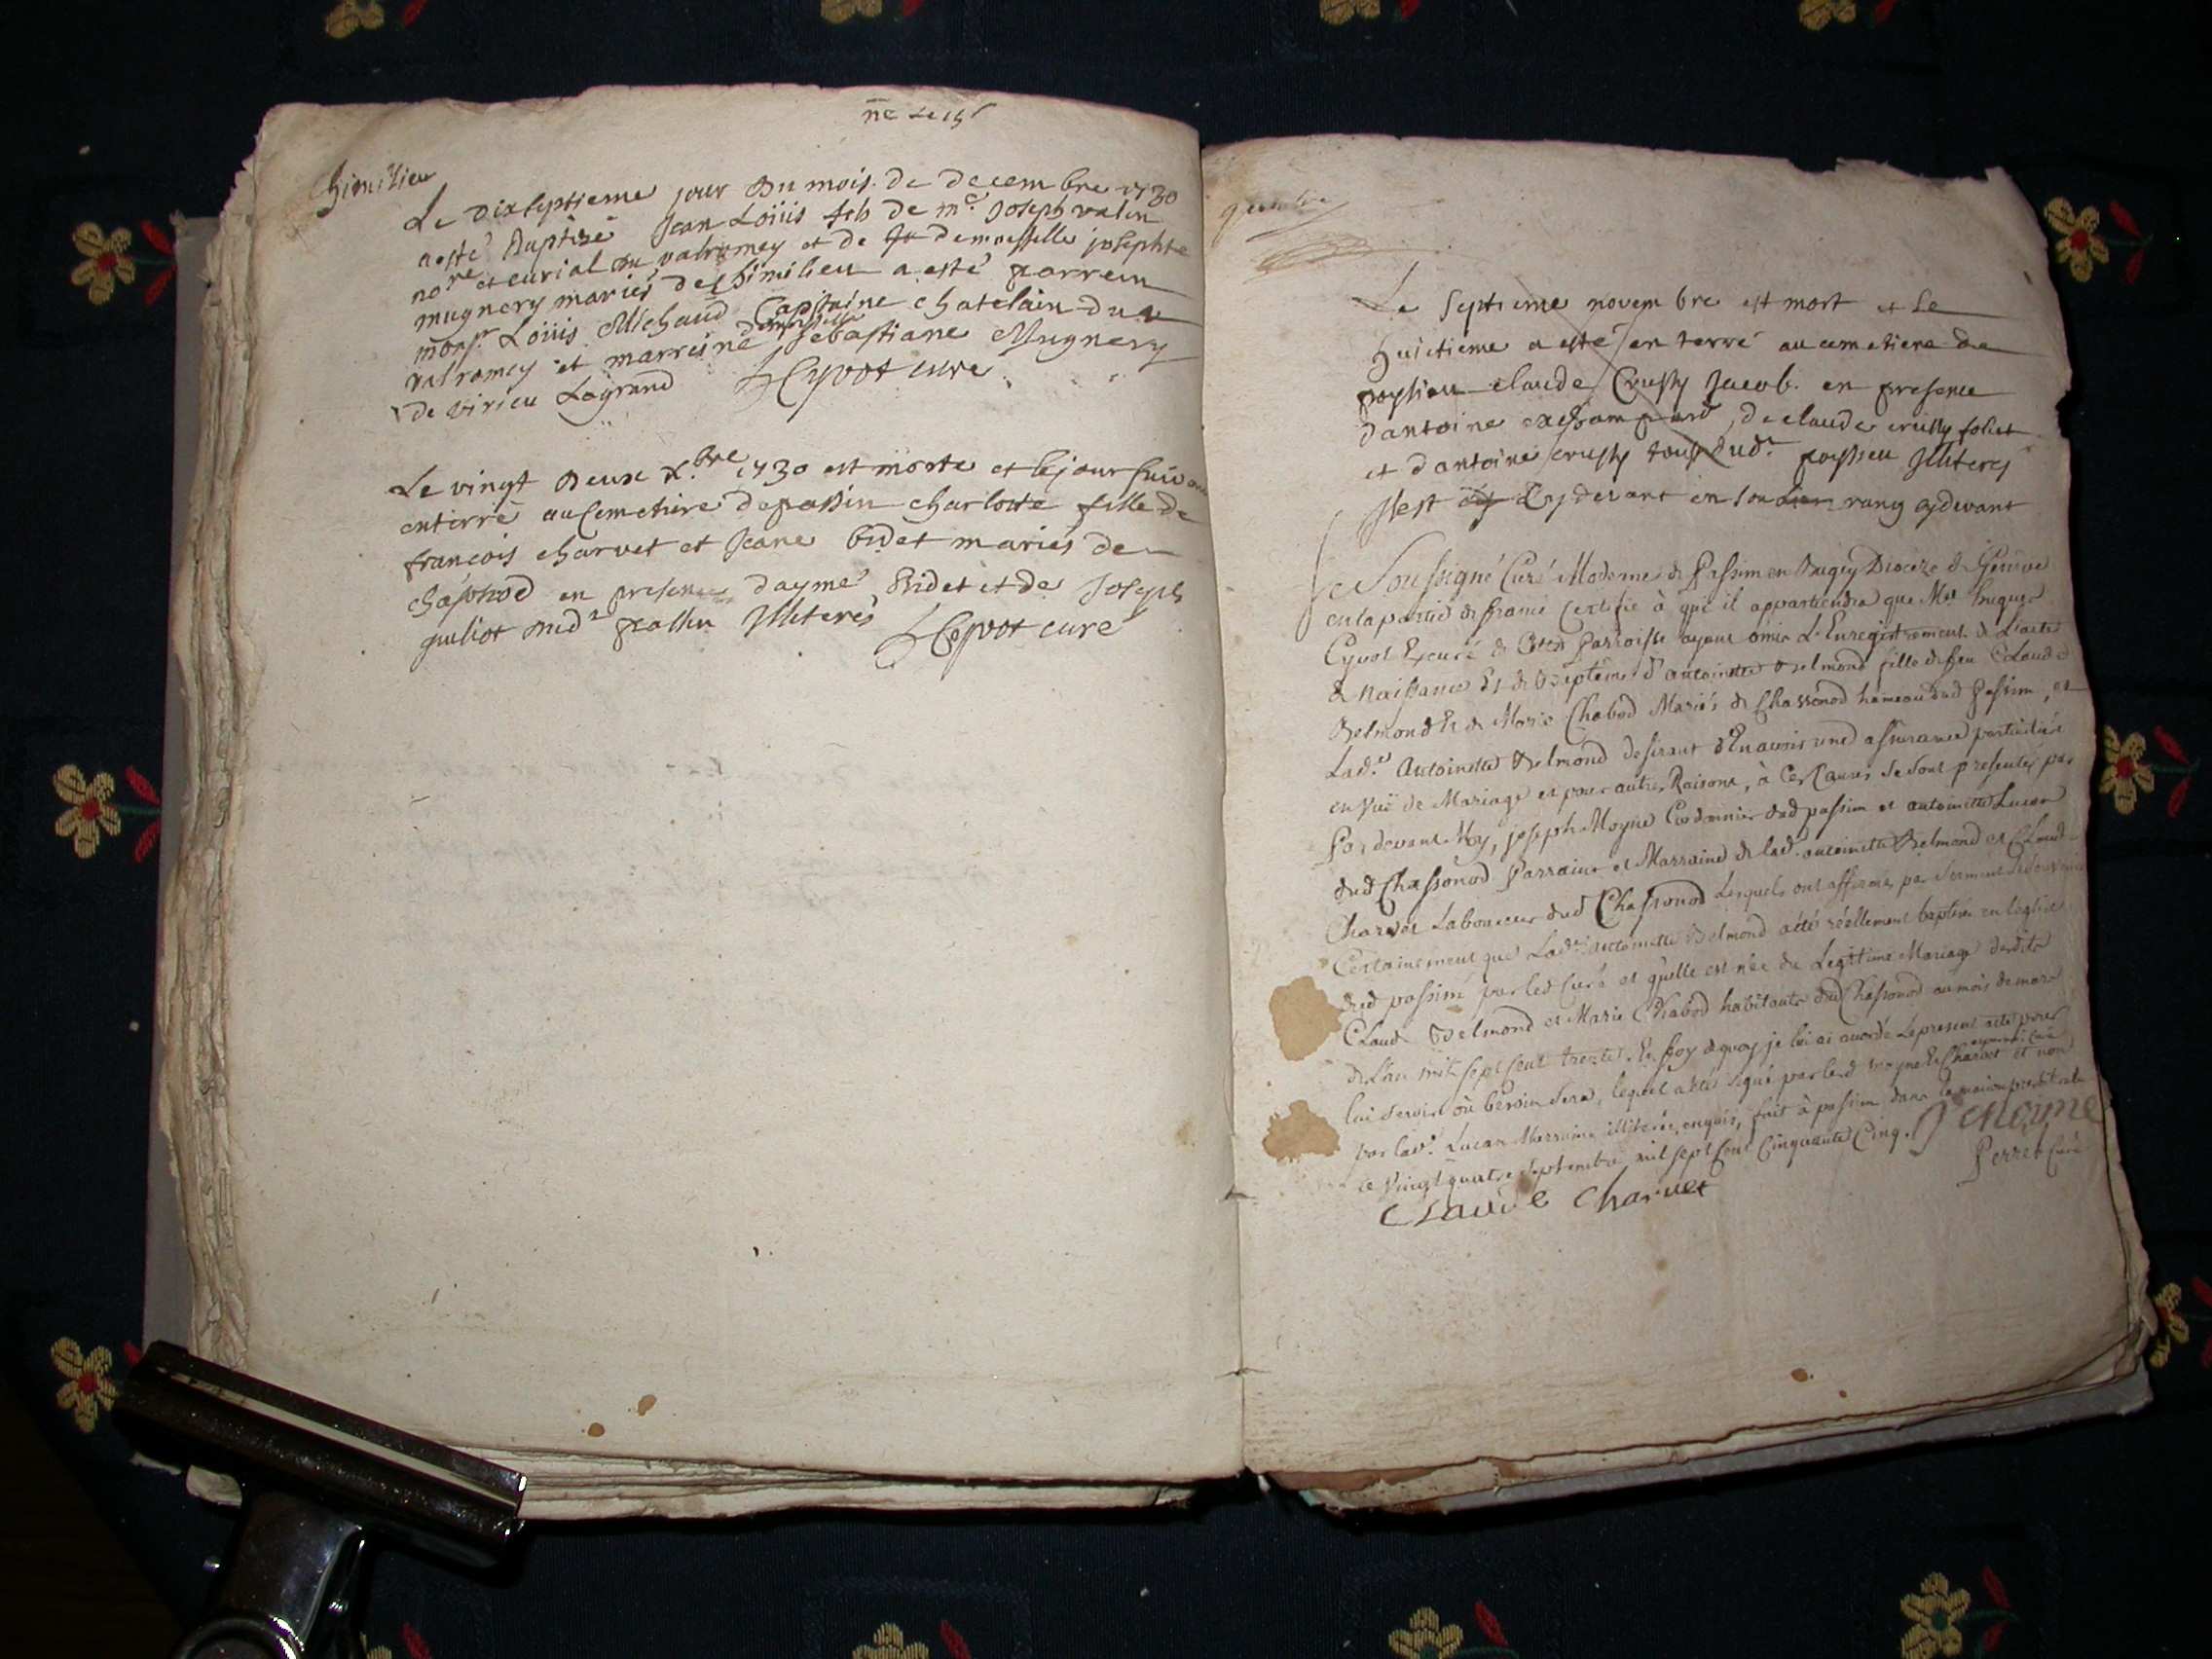 né Le 15
Chimilieu
Le dixseptieme jour du mois de decembre 1730
a esté Baptisé Jean Loüis fils de me. Joseph valin
nore et curial du valromey et de demoiselle josephte
mugnery mariés de Chimilieu a esté parrein
monsr. Loüis Michaud Capitaine chatelain du
valromey et marreine demoiselle sebastiane Mugnery
de virieu Legrand HCyvot curé
Le vingt Deux Xbre 1730 est morte et le jour suivant
enterré au Cemetiere de passin charlotte fille de
francois charvet et Jeane bidet mariés de
chasonod en presence dayme Bidet et de Joseph
juliot dudt passin Illiterés HCyvot curé
Le septieme novembre est mort et le
huictieme a esté enterré au cemetiere de
poysieu claude Crussy Jacob. en presence
dantoine , de claude crussy foliet
et dantoine crussy tous dudt. poysieu Illiterés
Il est Cy devant en son rang cydevant
Je Soussigné Curé Moderne de Passim en Bugey Dioceze de Geneve
en la partie de france Certifie à qui il appartiendra que Mre hugue
Cyvot Excuré de Paroisse ayant omis L'Enregistrement de L'acte
de Naissance Et de Bapteme d'antoinette Belmond fille de feu Claude
Belmond Et de Marie Chabod Mariés de Chassonod hameau dud Passim, et
Lad.e Antoinette Belmond desirant d'En avoir une assurance particuliere
en vuë de Mariage et pour autres Raisons, à Ces Causes Se sont presentés par
Par devant Moy, joseph Moyne Cordonnier dud passim et antoinette Lucan
dud Chassonod Parrain et Marraine de lad. antoinette Belmond et Claude
Charvet Laboureur dud Chassonod Lesquels ont affirmé par Serment Se souvenir
Certainement que Lade. antoinette Belmond a été réellement baptisée en leglise
dud passim par led Curé et qu'elle est née du Legitime Mariage desdits
Claude Belmond et Marie Chabod habitants dud Chassonod au mois de mars
de L'an mil sept cent trente. En foy de quoy je lui ai accordé Le present acte pour
lui servir où besoin sera, lequel a été signé par led moyne Et Charvet et non
par lad. Lucan Marraine illiterée enquise, fait à passim dans la maison presbiterale
ce Vingt quatre Septembre mil sept cent Cinquante Cinq. J Moyne
Perret Curé
Claude Charvet